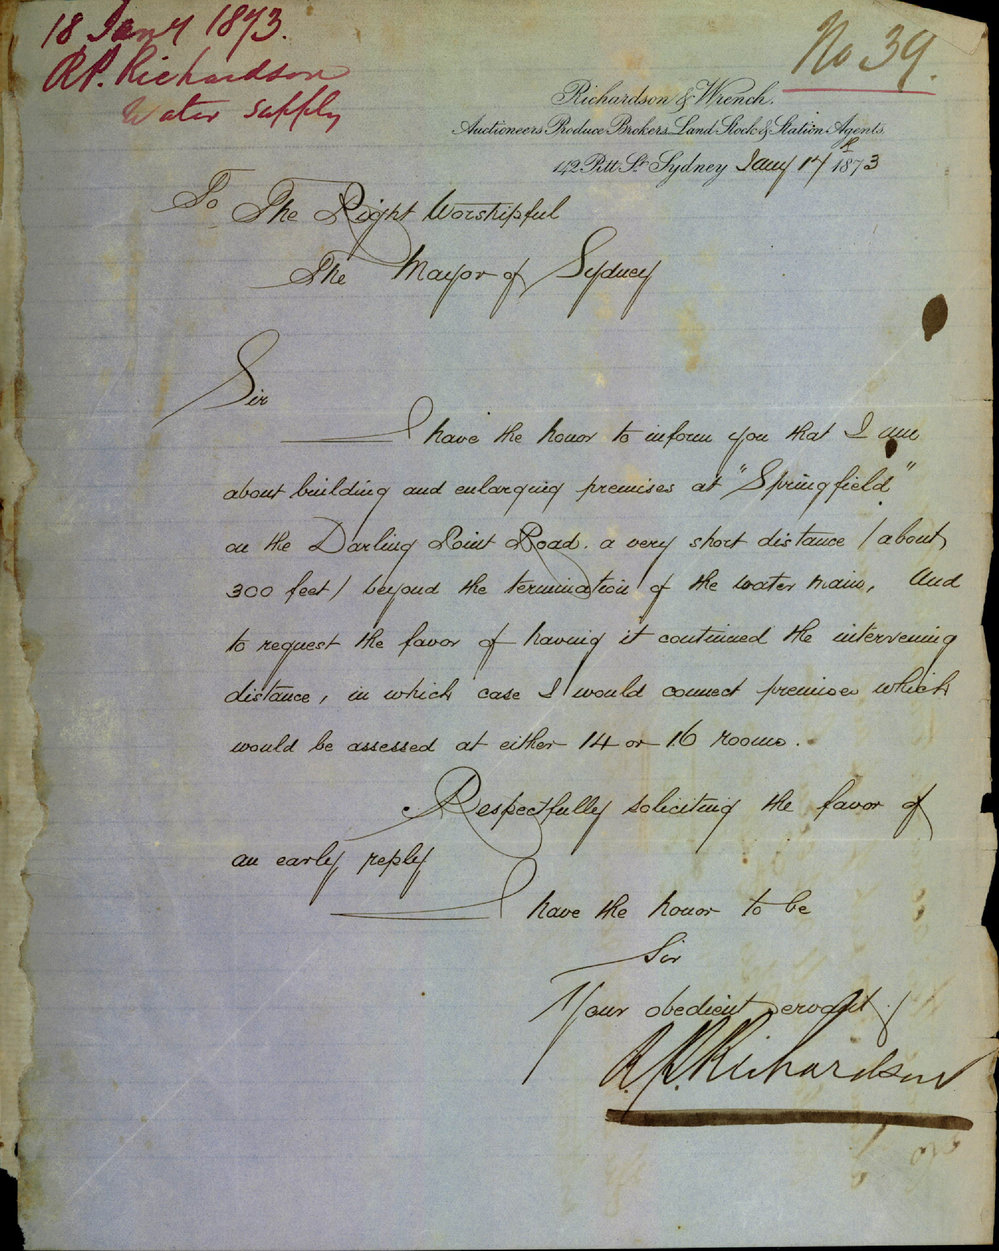 18 Jany 1873.
R P. Richardson
Water supply
No 39.
Richardson & Wrench.
Auctioneers Produce Brokers Land Stock & Station Agents
142 Pitt St. Sydney Jany 17th 1873
To The Right Worshipful
The Mayor of Sydney
Sir
I have the honor to inform you that I am
about building and enlarging premises at "Springfield"
on the Darling Point Road. a very short distance (about
300 feet) beyond the termination of the water main, And
to request the favor of having it continued the intervening
distance, in which case I would connect premises which
would be assessed at either 14 or 16 rooms.
Respectfully soliciting the favor of
an early reply
I have the honor to be
Sir
Your obedient servant
R. P. Richardson